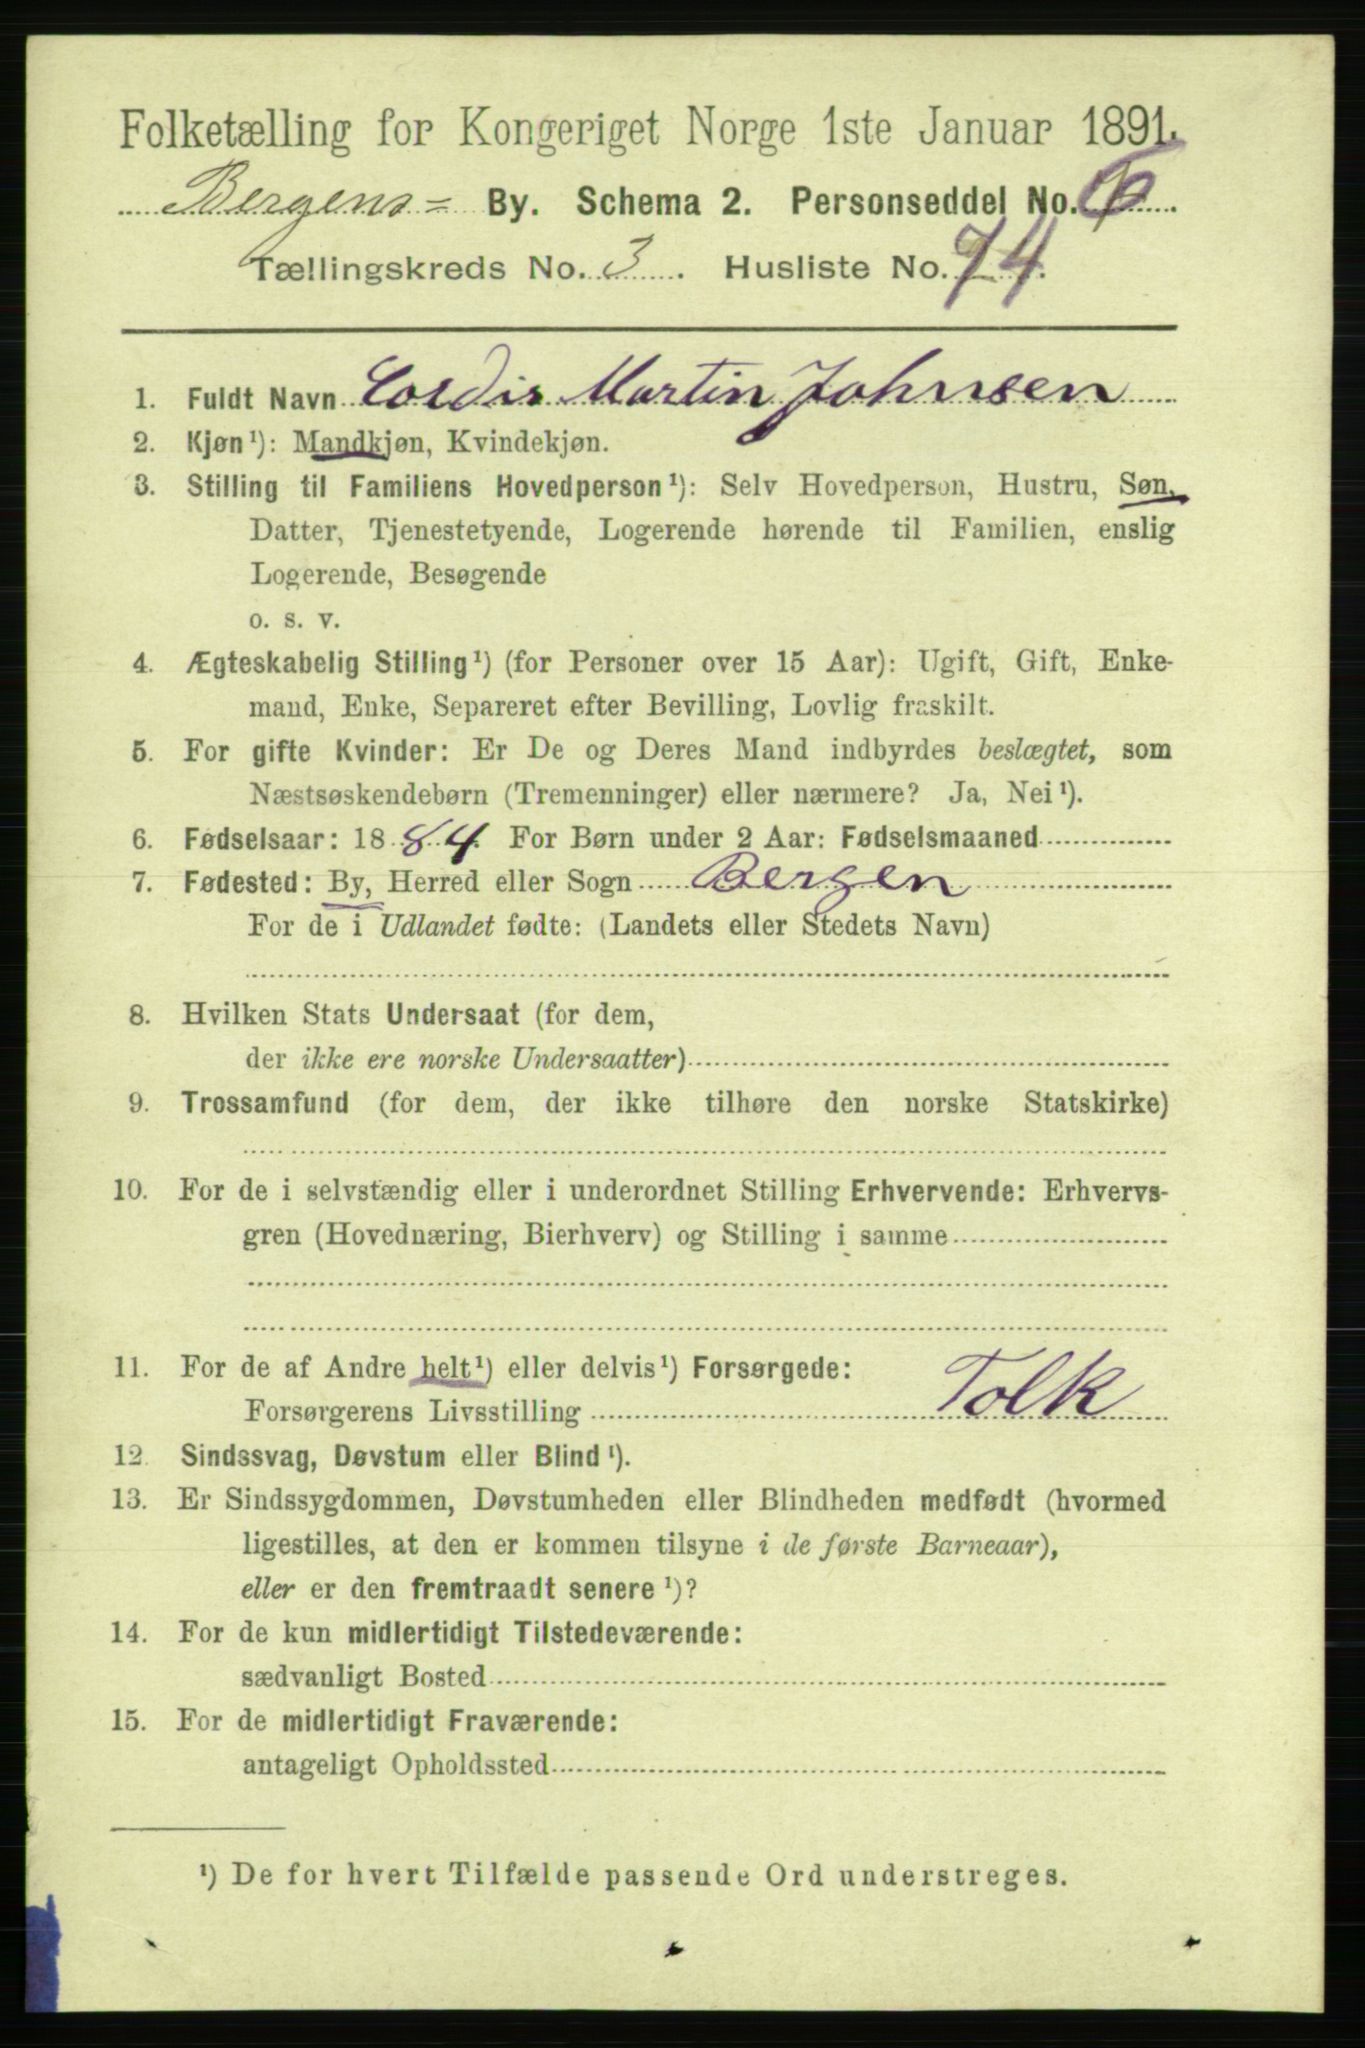 Folketælling for Kongeriget Norge 1ste Januar 1891.
Bergens= By. Schema 2. Personseddel No. 6
Tællingskreds No. 3. Husliste No. 74.
1. Fuldt Navn Cordis Martin Johnsen
2. Kjøn¹): Mandkjøn, Kvindekjøn.
3. Stilling til Familiens Hovedperson¹): Selv Hovedperson, Hustru, Søn,
Datter, Tjenestetyende, Logerende hørende til Familien, enslig
Logerende, Besøgende
o. s. v.
4. Ægteskabelig Stilling¹) (for Personer over 15 Aar): Ugift, Gift, Enke-
mand, Enke, Separeret efter Bevilling, Lovlig fraskilt.
5. For gifte Kvinder: Er De og Deres Mand indbyrdes beslægtet, som
Næstsøskendebørn (Tremenninger) eller nærmere? Ja, Nei¹).
6. Fødselsaar: 1884. For Børn under 2 Aar: Fødselsmaaned
7. Fødested: By, Herred eller Sogn Bergen
For de i Udlandet fødte: (Landets eller Stedets Navn)
8. Hvilken Stats Undersaat (for dem,
der ikke ere norske Undersaatter)
9. Trossamfund (for dem, der ikke tilhøre den norske Statskirke)
10. For de i selvstændig eller i underordnet Stilling Erhvervende: Erhvervs-
gren (Hovednæring, Bierhverv) og Stilling i samme
11. For de af Andre helt¹) eller delvis¹) Forsørgede:
Forsørgerens Livsstilling Tolk
12. Sindssvag, Døvstum eller Blind¹).
13. Er Sindssygdommen, Døvstumheden eller Blindheden medfødt (hvormed
ligestilles, at den er kommen tilsyne i de første Barneaar),
eller er den fremtraadt senere¹)?
14. For de kun midlertidigt Tilstedeværende:
sædvanligt Bosted
15. For de midlertidigt Fraværende:
antageligt Opholdssted
¹) De for hvert Tilfælde passende Ord understreges.